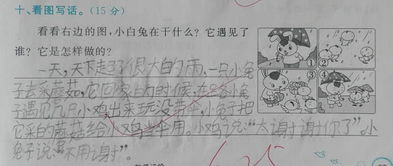 十、看图写话。(15分)
看看右边的图,小白兔在干什么?它遇见了
谁?它是怎样做的?
一天,天下起了很大的雨,一只小兔
子去采蘑菇,它回家上的时候,在路
遇见几只小鸡出来玩没带伞,小兔子把
它采的蘑菇给小鸡当伞用。小鸡说:“太谢谢你了”。小
兔子说:“不用谢”。